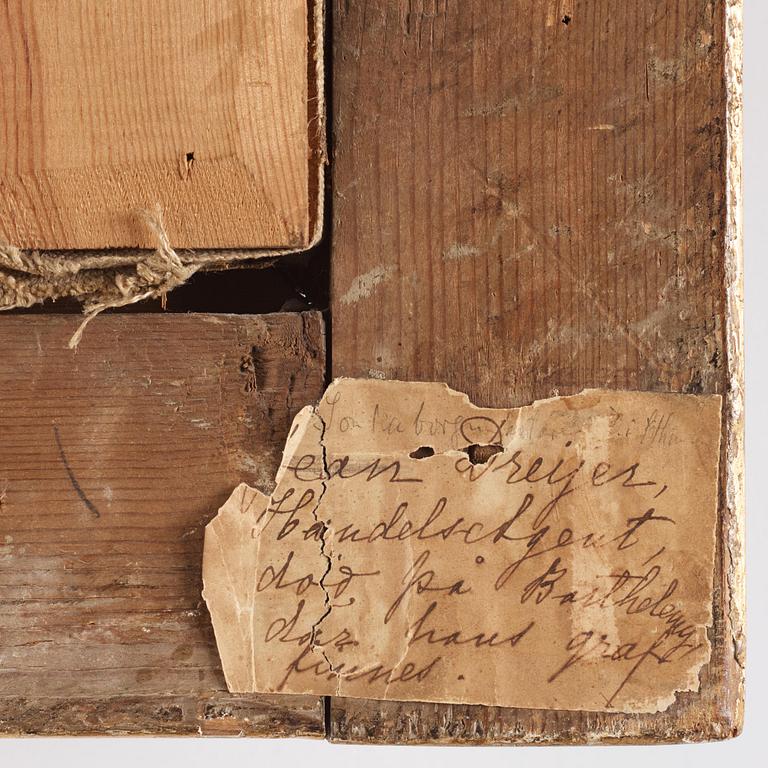 ean Dreijer,
Handelsagent,
död på Barthelemy,
där hans graf
finnes.